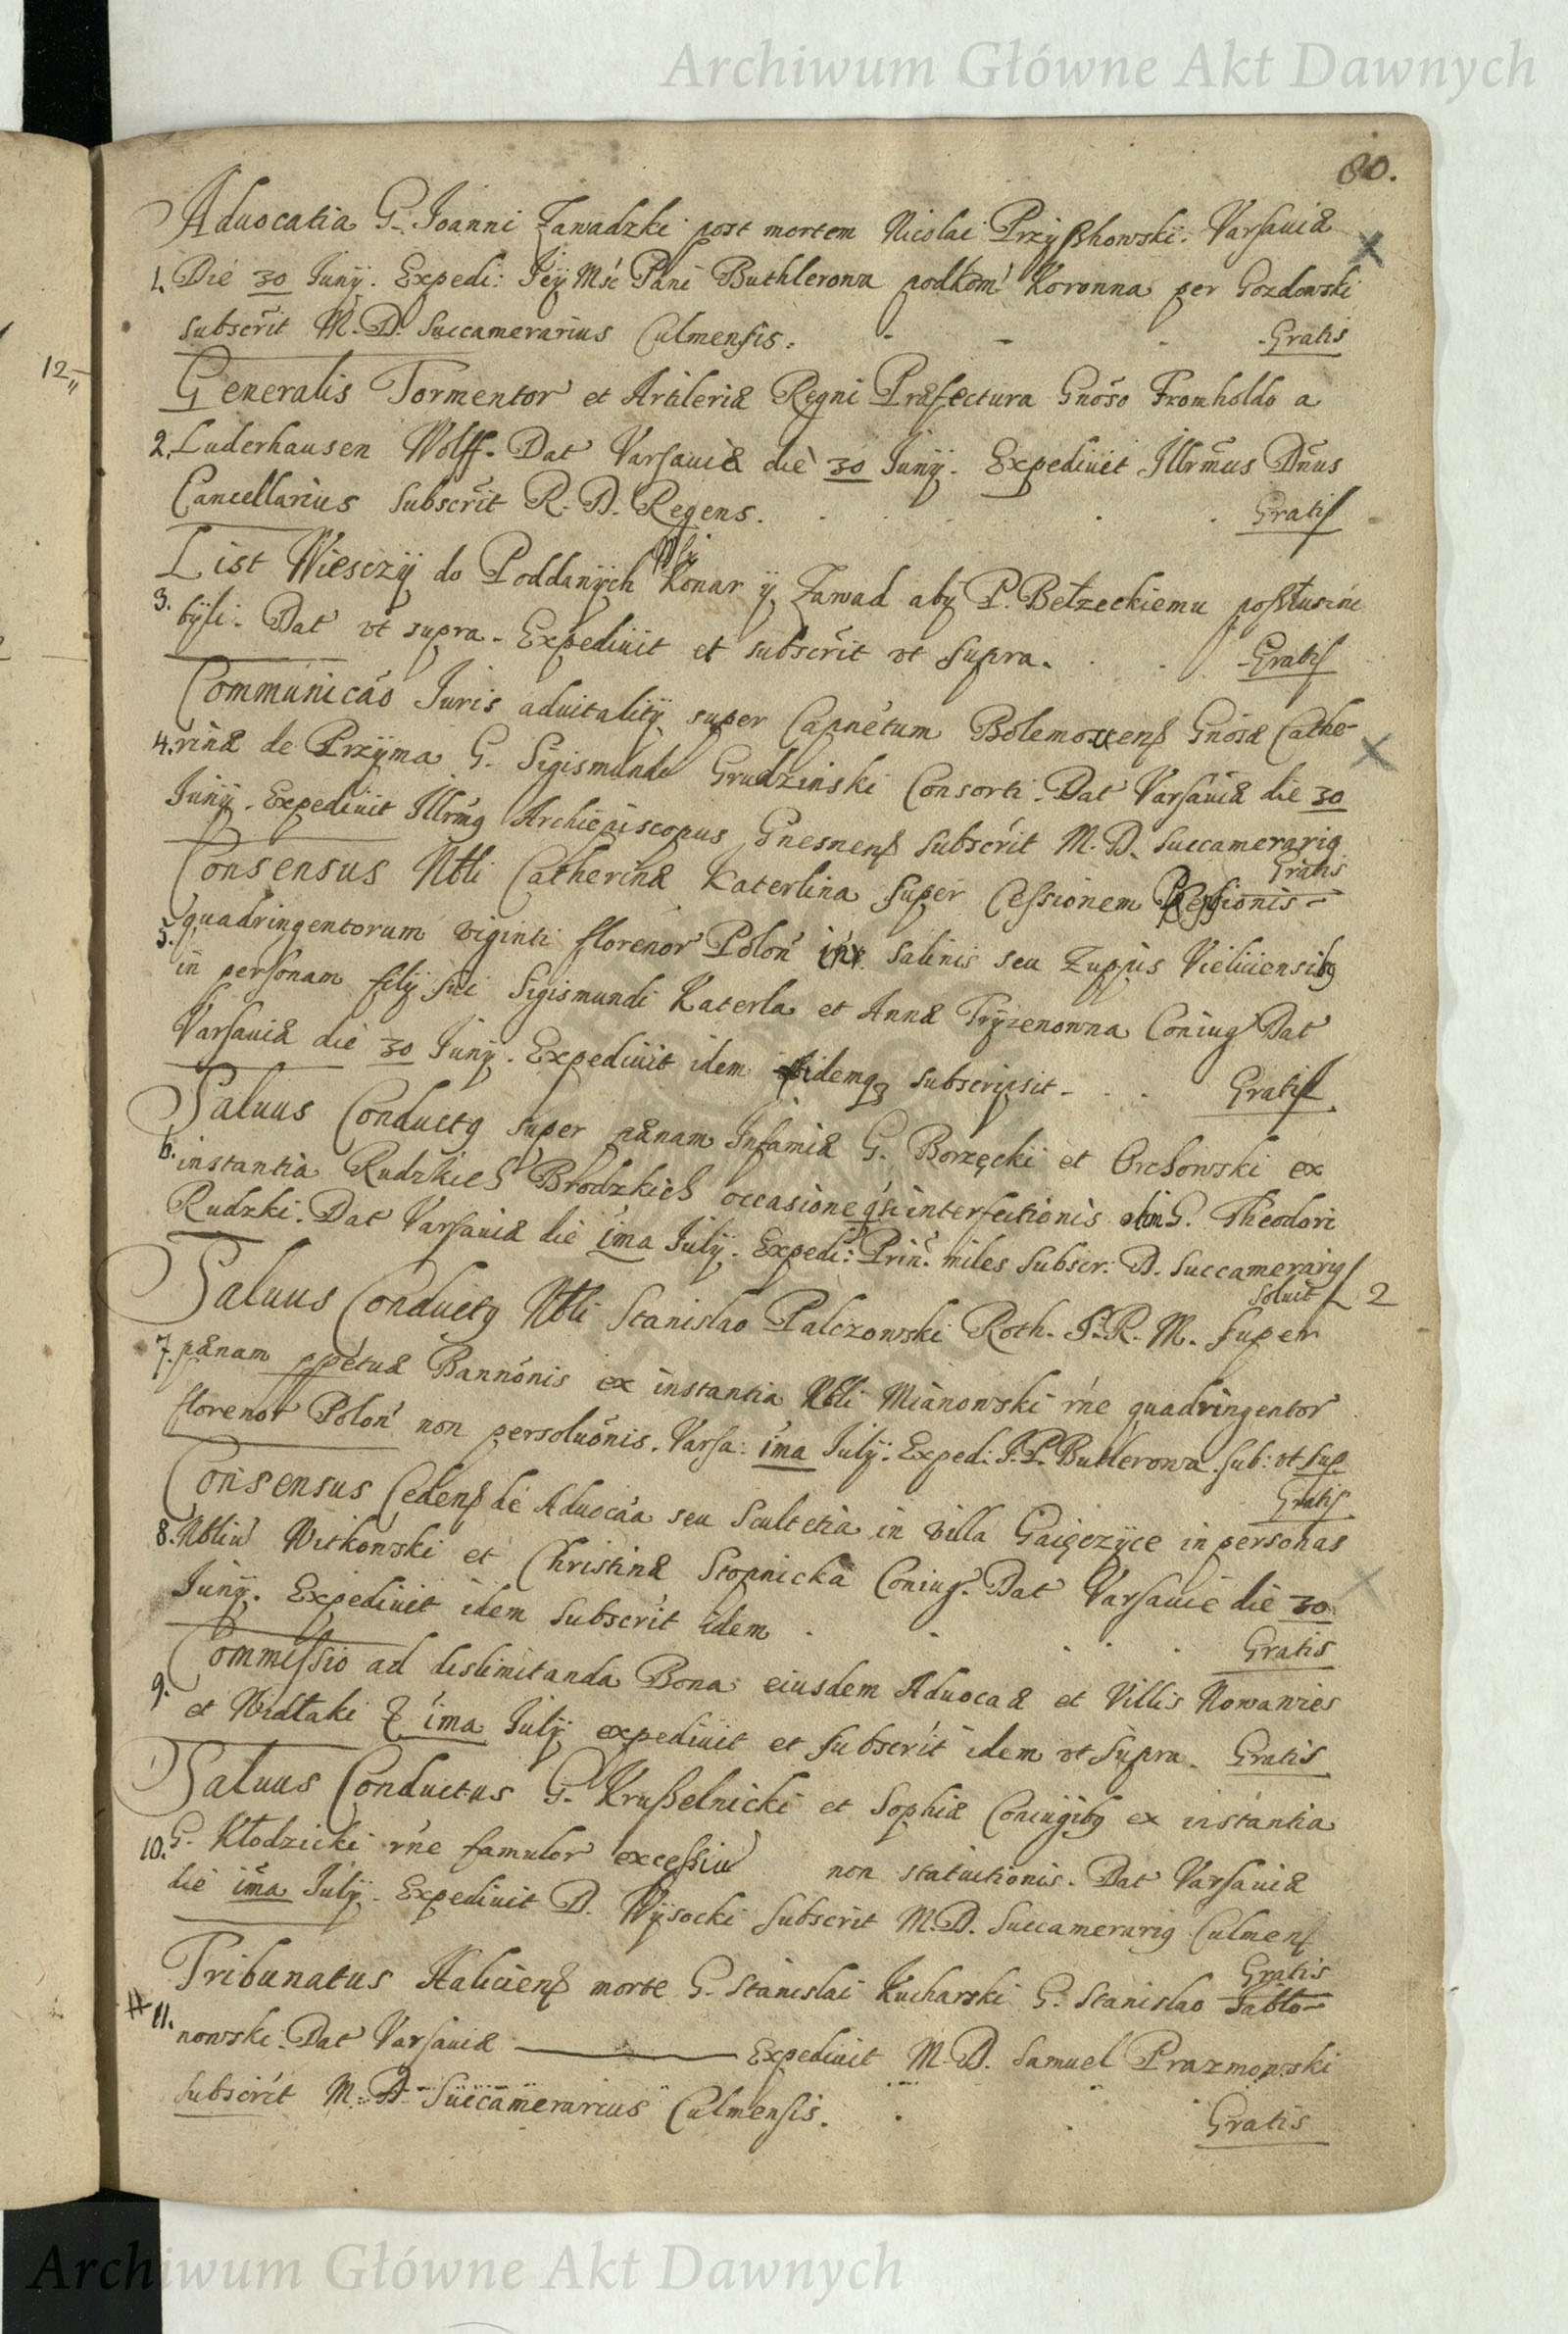 Archiwum Główne Akt Dawnych
80.
12
Aduocatia G. Joanni Zawadzki post mortem Nicolai Przyßhowski. Varsauiæ
1. Die 30 Junÿ. Expedi: Jeÿ Mść Pani Buthlerowa podkom Koronna per Gozdowski
subscrit M. D. Succamerarius Culmensis. Gratis
Generalis Tormentor et Artileriæ Regni Præfectura Gnoso Fromholdo a
2. Luderhausen Wolff. Dat Varsauiæ die 30 Junÿ. Expediuit Illrmus Dnus
Cancellarius subscrit R. D. Regens. Gratis
List Wiesczÿ do Poddanÿch Wsi Konar ÿ Zawad abÿ P. Bełzeckiemu posłuszni
3. bÿli. Dat vt supra. Expediuit et subscrit vt supra. Gratis
Communicao Juris aduitalitÿ super Capnetum Bolemouens Gnosæ Cathe-
4. rinæ de Przÿma G. Sigismundi Grudzinski Consorti. Dat Varsauiæ die 30
Junÿ. Expediuit Illrmg Archiepiscopus Gnesnens subscrit M. D. Succamerarig
Gratis
Consensus Nbli Catherinæ Katerlina super Cessionem Pensionis
5. quadringentorum viginti florenor Polon in salinis seu Zuppis Vieliciensibg
in personam filÿ sui Sigismundi Katerla et Annæ Trÿzenowna Coniug Dat
Varsauiæ die 30 Junÿ. Expediuit idem idemq subscripsit. Gratis
Saluus Conductg super pænam Infamiæ G. Borzęcki et Orchowski ex
6. instantia Rudzkich Brodzkich occasione interfectionis olim G. Theodori
Rudzki. Dat Varsauiæ die ima Julÿ. Expedi: Prin. miles subscr: D. Succamerarig
Soluit f 2
Saluus Conductg Nbli Stanislao Palczowski Roth. S. R. M. super
7. pænam ppetuæ Bannonis ex instantia Nbli Mianowski rne quadringentor
florenor Polon non persoluonis. Varsa: ima Julÿ. Exped: J. P. Butlerowa sub: vt sup.
Gratis
Consensus Cedens de Aduocaa seu Scultetia in villa Gaięczÿce in personas
8. Nbliu Witkowski et Christinæ Stopnicka Coniug. Dat Varsauie die 30
Junÿ. Expediuit idem subscrit idem Gratis
Commissio ad deslimitanda Bona eiusdem Aduocaæ et Villis Nowawies
9. et Widłaki ima Julÿ expediuit et subscrit idem vt supra. Gratis
Saluus Conductus G. Krußelnicki et Sophiæ Coniugibg ex instantia
10. G. Kłodzicki rne famulor excessiu non statuitionis. Dat Varsauiæ
die ima Julÿ. Expediuit D. Wÿsocki subscrit M. D. Succamerarig Culmens
Gratis
Tribunatus Haliciens morte G. Stanislai Kucharski G. Stanislao Jabło-
11. nowski. Dat Varsauiæ Expediuit M. D. Samuel Prazmowski
subscrit M. D. Succamerarius Culmensis. Gratis
Archiwum Główne Akt Dawnych